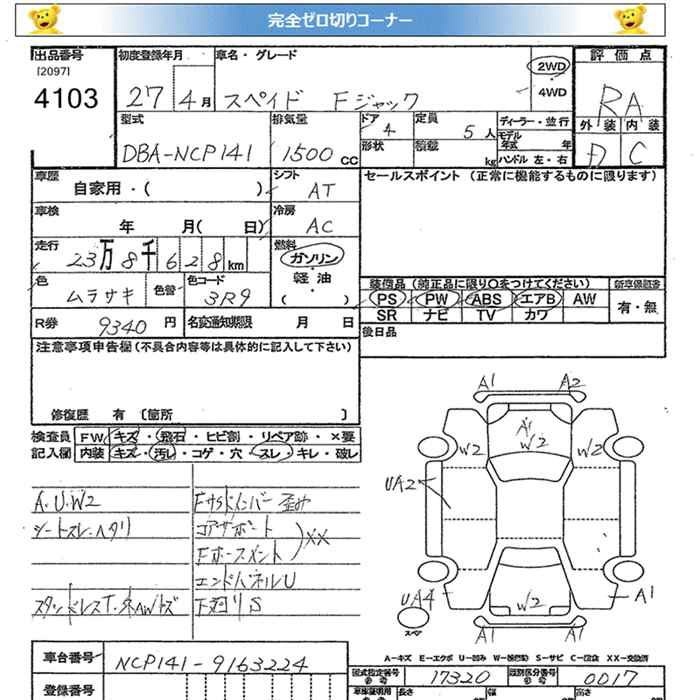 完全ゼロ切りコーナー
出品番号
[2097]
4103
初度登録年月
27 4月
車名・グレード
スペイド Fジャック
2WD
4WD
評価点
RA
外装 内装
D C
型式
DBA-NCP141
排気量
1500 CC
ドア 4
形状
定員 5人
積載 kg
ディーラー・並行
モデル年式 年
ハンドル 左・右
車歴
自家用・( )
シフト AT
車検
年 月( 日)
冷房 AC
走行
23万8千628km
燃料
ガソリン
軽油
( )
色
ムラサキ
色替
色コード
3R9
R券 9340円
名変通知期限 月 日
セールスポイント (正常に機能するものに限ります)
装備品 (純正品に限り○をつけてください)
PS PW ABS エアB AW
SR ナビ TV カワ
新車保証書
有・無
後日品
注意事項申告欄(不具合内容等は具体的に記入して下さい)
修復歴 有 [箇所 ]
検査員 FW キズ・飛石・ヒビ割・リペア跡・×要
記入欄 内装 キズ・汚レ・コゲ・穴・スレ・キレ・破レ
A.U.W2
シートスレ.ヘタリ
コアサポート
XX
エンドパネルU
下廻りS
A1 A2
A1
W2
W2 W2
UA2
UA4
スペア
W2
A1
A1 A1
A-キズ E-エクボ U-凹み S-サビ XX-交換済
車台番号 NCP141-9163224
登録番号
型式指定番号 17320
類別区分番号 0017
長さ 幅 高さ